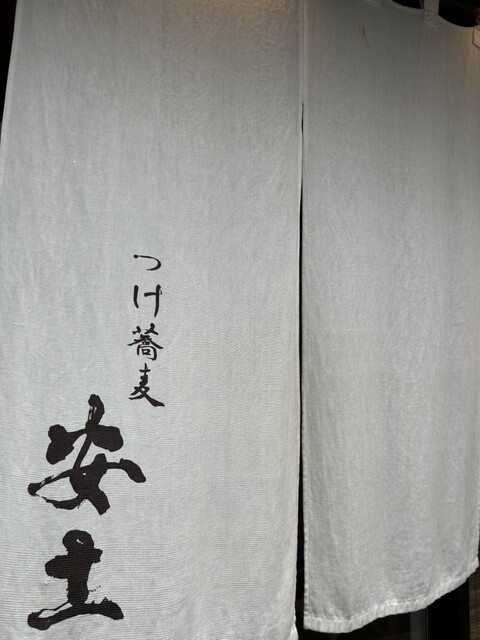 つけ蕎麦
安土